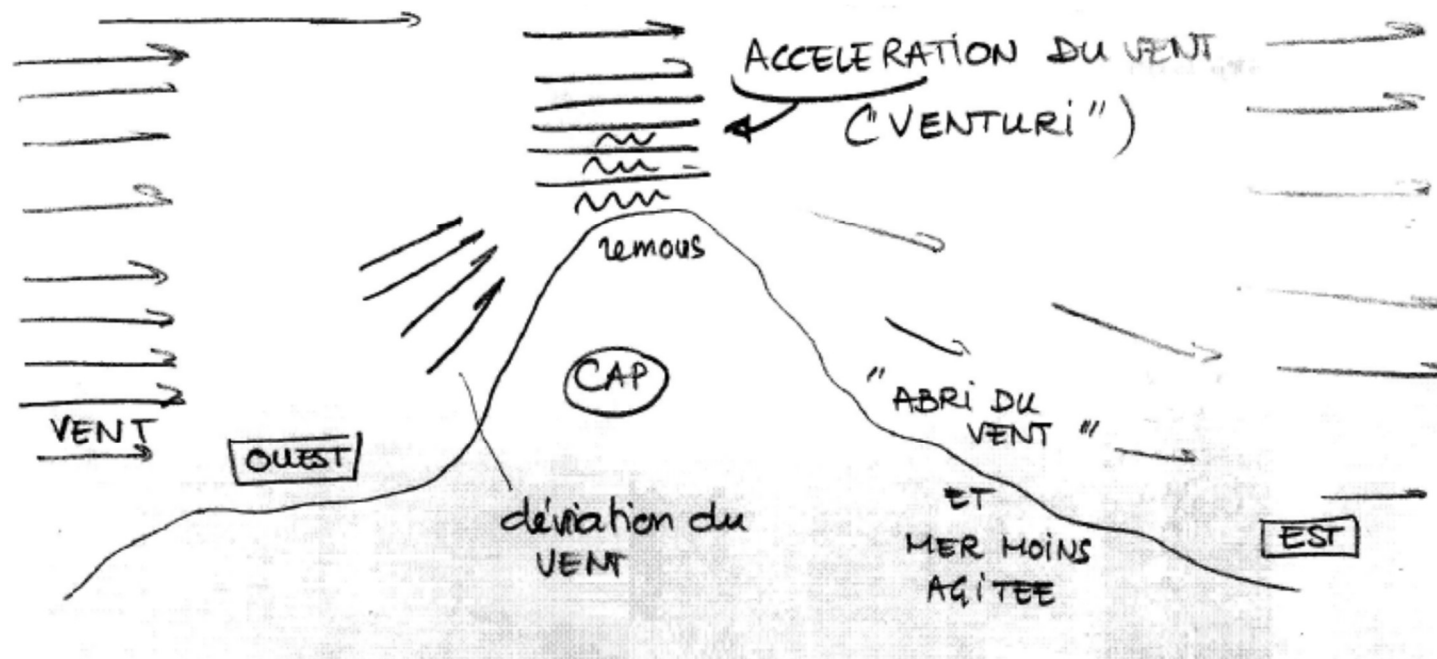 ACCELERATION DU VENT
("VENTURI")
remous
CAP
VENT
OUEST
déviation du
VENT
"ABRI DU
VENT"
ET
MER MOINS
AGITEE
EST